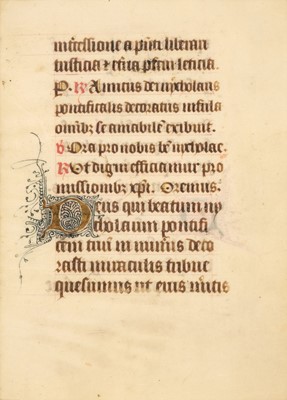 intercessione a pnti liberari
tristicia et etna pfrui leticia.
P. R Amicus dei nycholaus
pontificalis decoratus infula
omnibꝫ se amabilē exibuit.
V Ora pro nobis bē nycholae.
R Ut digni efficiamur pro
missionibꝫ xpi. Oremus.
Deus qui beatum ny
cholaum pontifi
cem tuū in muris deco
rasti miraculis tribue
quesumus ut eius mitis